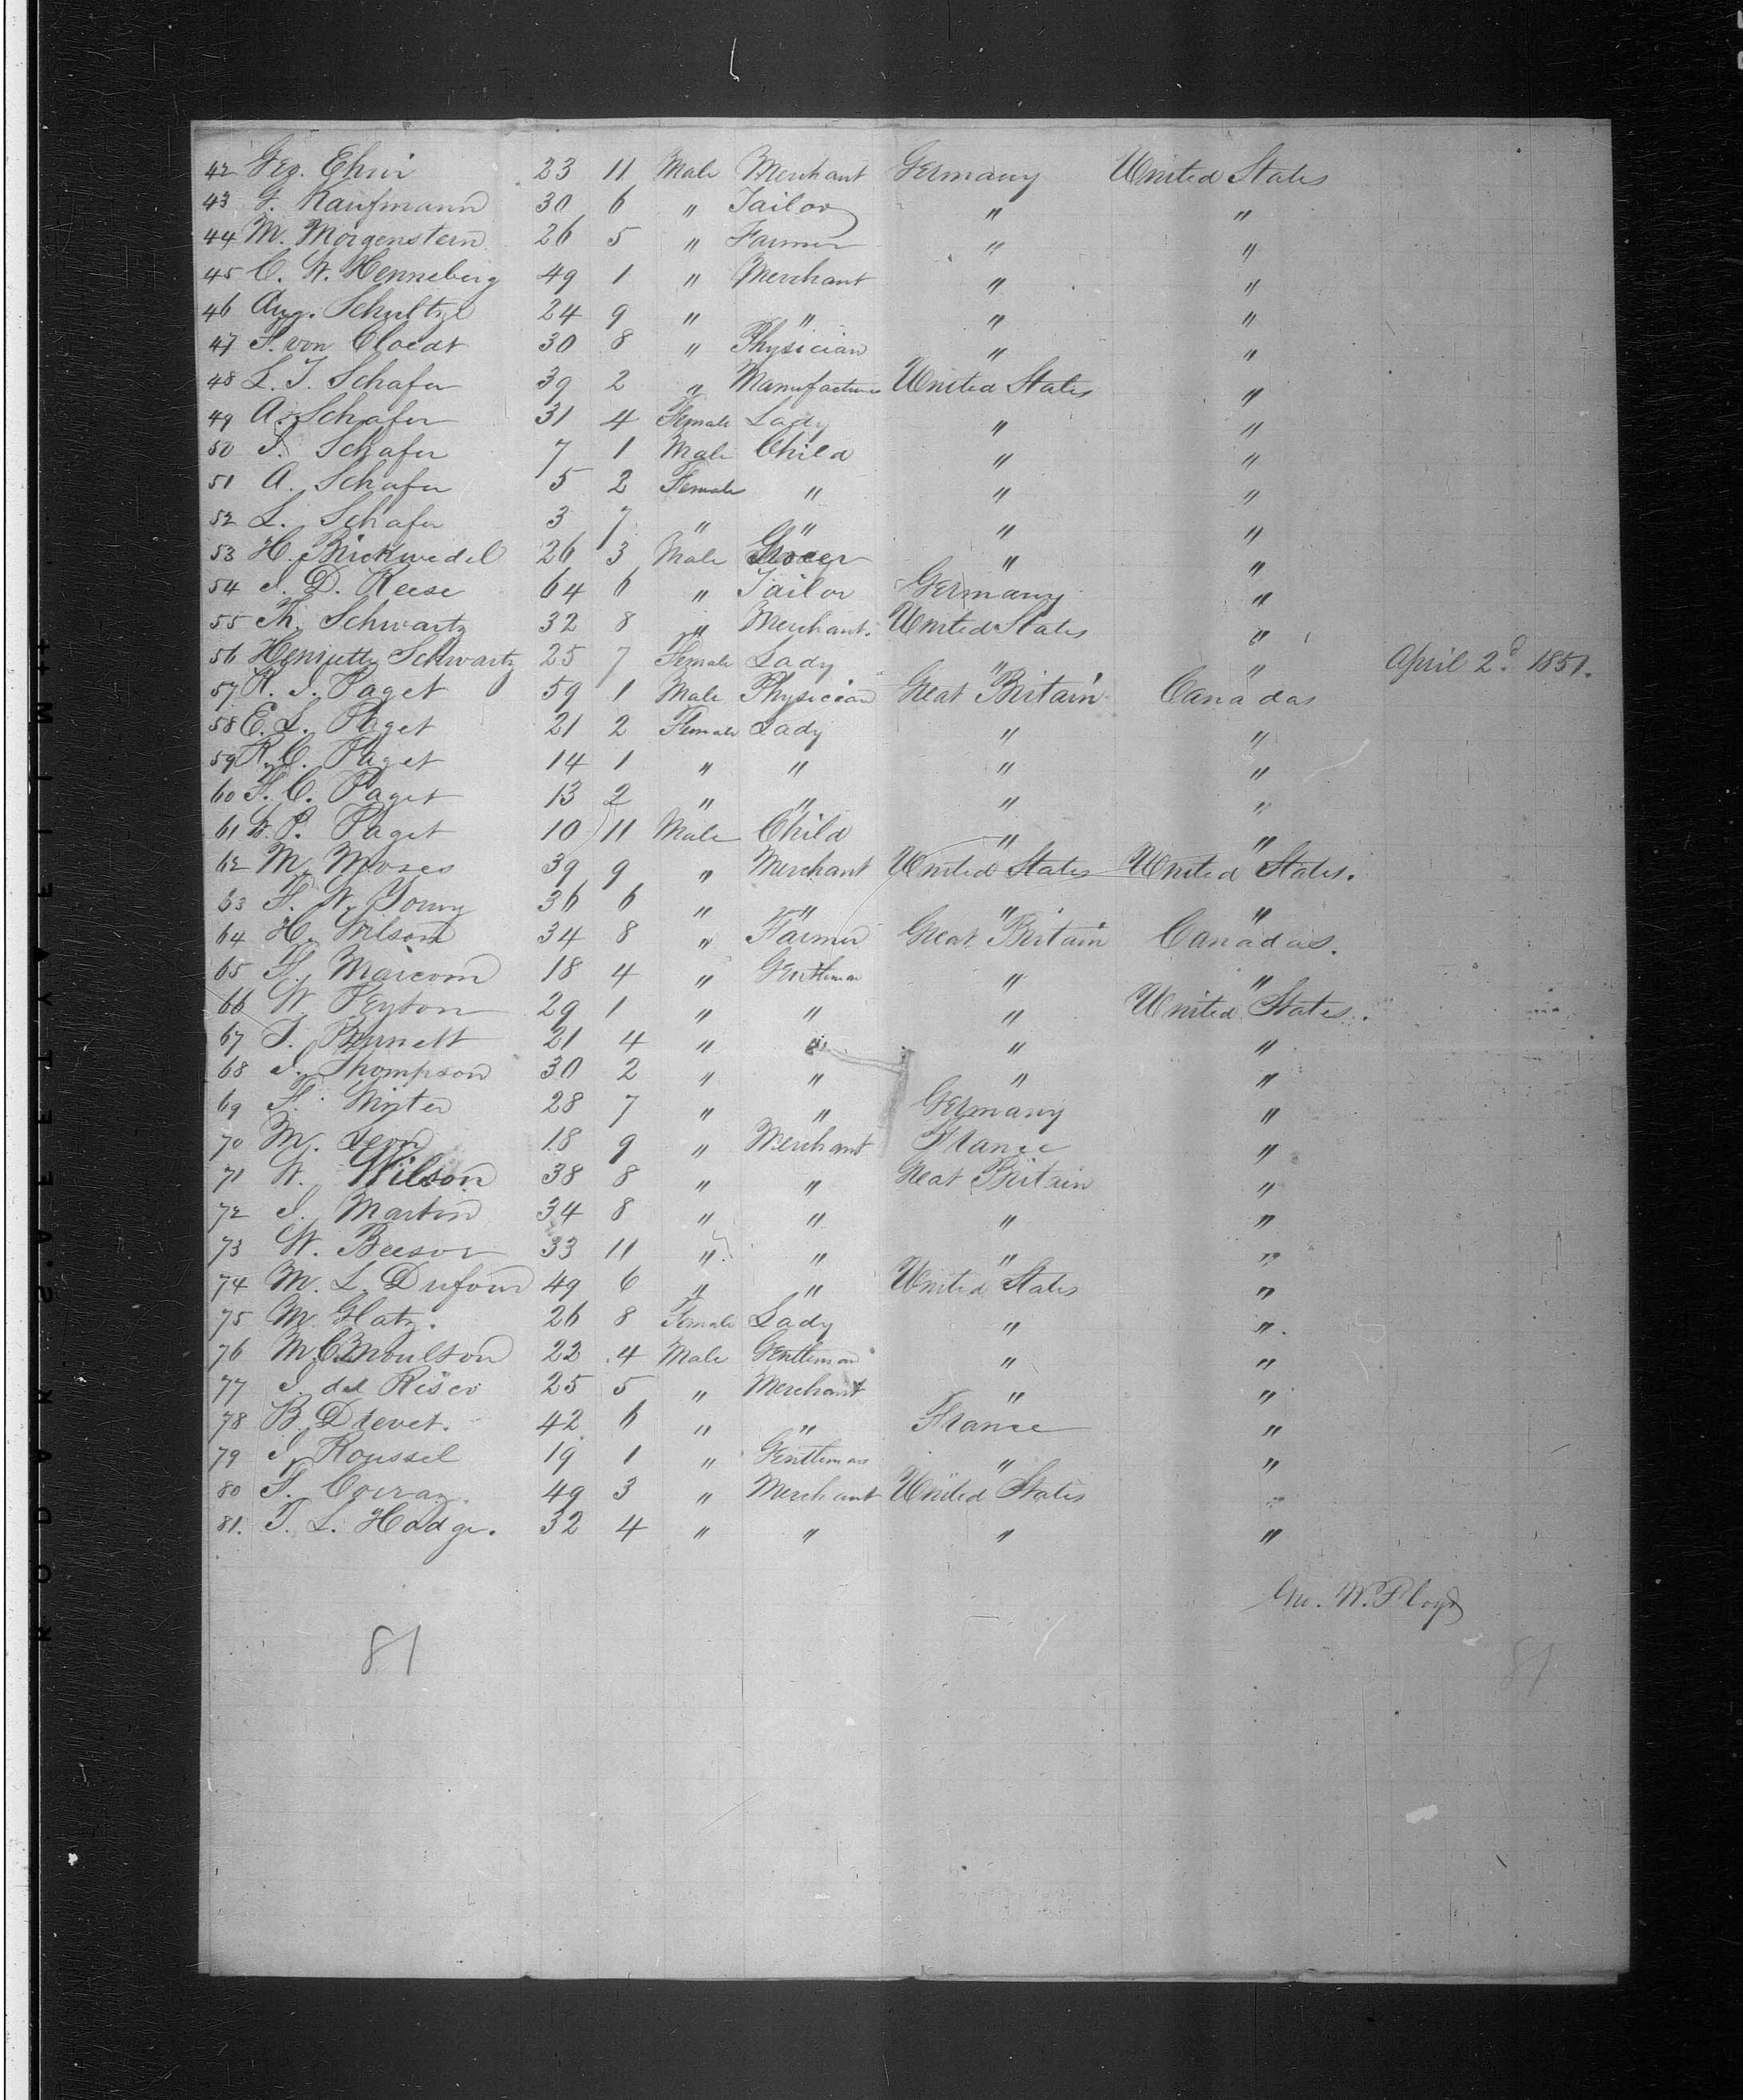 42 Geo. Ehni 23 11 Male Merchant Germany United States
43 F. Kaufmann 30 6 " Tailor " "
44 M. Morgenstern 26 5 " Farmer " "
45 C. W. Henneberg 49 1 " Merchant " "
46 Aug. Schultze 24 9 " " " "
47 F. von Cloedt 30 8 " Physician " "
48 L. T. Schafer 39 2 " Manufacturer United States "
49 A. Schafer 31 4 Female Lady " "
50 S. Schafer 7 1 Male Child " "
51 A. Schafer 5 2 Female " " "
52 L. Schafer 3 7 " " " "
53 H. Brickwedel 26 3 Male Grocer " "
54 J. D. Reese 64 6 " Tailor Germany "
55 M. Schwartz 32 8 " Merchant. United States "
56 Henriette Schwartz 25 7 Female Lady " " April 2d. 1851.
57 R. J. Paget 59 1 Male Physician Great Britain Canadas
58 E. L. Paget 21 2 Female Lady " "
59 R. C. Paget 14 1 " " " "
60 F. C. Paget 13 2 " " " "
61 W. P. Paget 10 11 Male Child " "
62 M. Moses 39 9 " Merchant United States United States.
63 F. W. Young 36 6 " " " "
64 H. Wilson 34 8 " Farmer Great Britain Canadas.
65 F. Marcom 18 4 " Gentleman " "
66 W. Peyton 29 1 " " " United States.
67 T. Bennett 21 4 " " " "
68 J. Thompson 30 2 " " " "
69 F. 28 7 " " Germany "
70 M. Leon 18 9 " Merchant France "
71 W. Wilson 38 8 " " Great Britain "
72 J. Martin 34 8 " " " "
73 W. Beeson 33 11 " " " "
74 M. L. Dufour 49 6 " " United States "
75 M. Glatz. 26 8 Female Lady " "
76 M. C. Moulson 22 4 Male Gentleman " "
77 J. del Risco 25 5 " Merchant " "
78 B. Drevet. 42 6 " " France "
79 J. Roussel 19 1 " Gentleman " "
80 F. 49 3 " Merchant United States "
81. T. L. Hodge. 32 4 " " " "
Geo. W. Floyd
81
81